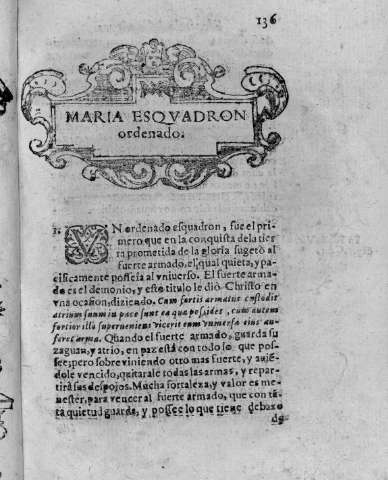 136
MARIA ESQVADRON
ordenado.
1. VN ordenado esquadron, fue el pri-
mero que en la conquista dela tier
ra prometida de la gloria sugetò al
fuerte armado, el qual quieta, y pa-
cificamente posseia al vniuerso. El fuerte arma-
do es el demonio, y este titulo le diò Christo en
vna ocasion, diziendo. Cum fortis armatus custodit
atrium suum in pace sunt ea quæ possidet, cum autem
fortior illo superueniens vicerit eum vniuersa eius au-
feret arma. Quando el fuerte armado, guarda su
zaguan, y atrio, en paz està con todo lo que pos-
see; pero sobreviniendo otro mas fuerte, y auiẽ-
dole vencido, quitarale todas las armas, y repar-
tirà sus despojos. Mucha fortaleza, y valor es me-
nester, para vencer al fuerte armado, que con tã-
ta quietud guarda, y possee lo que tiene debaxo
de